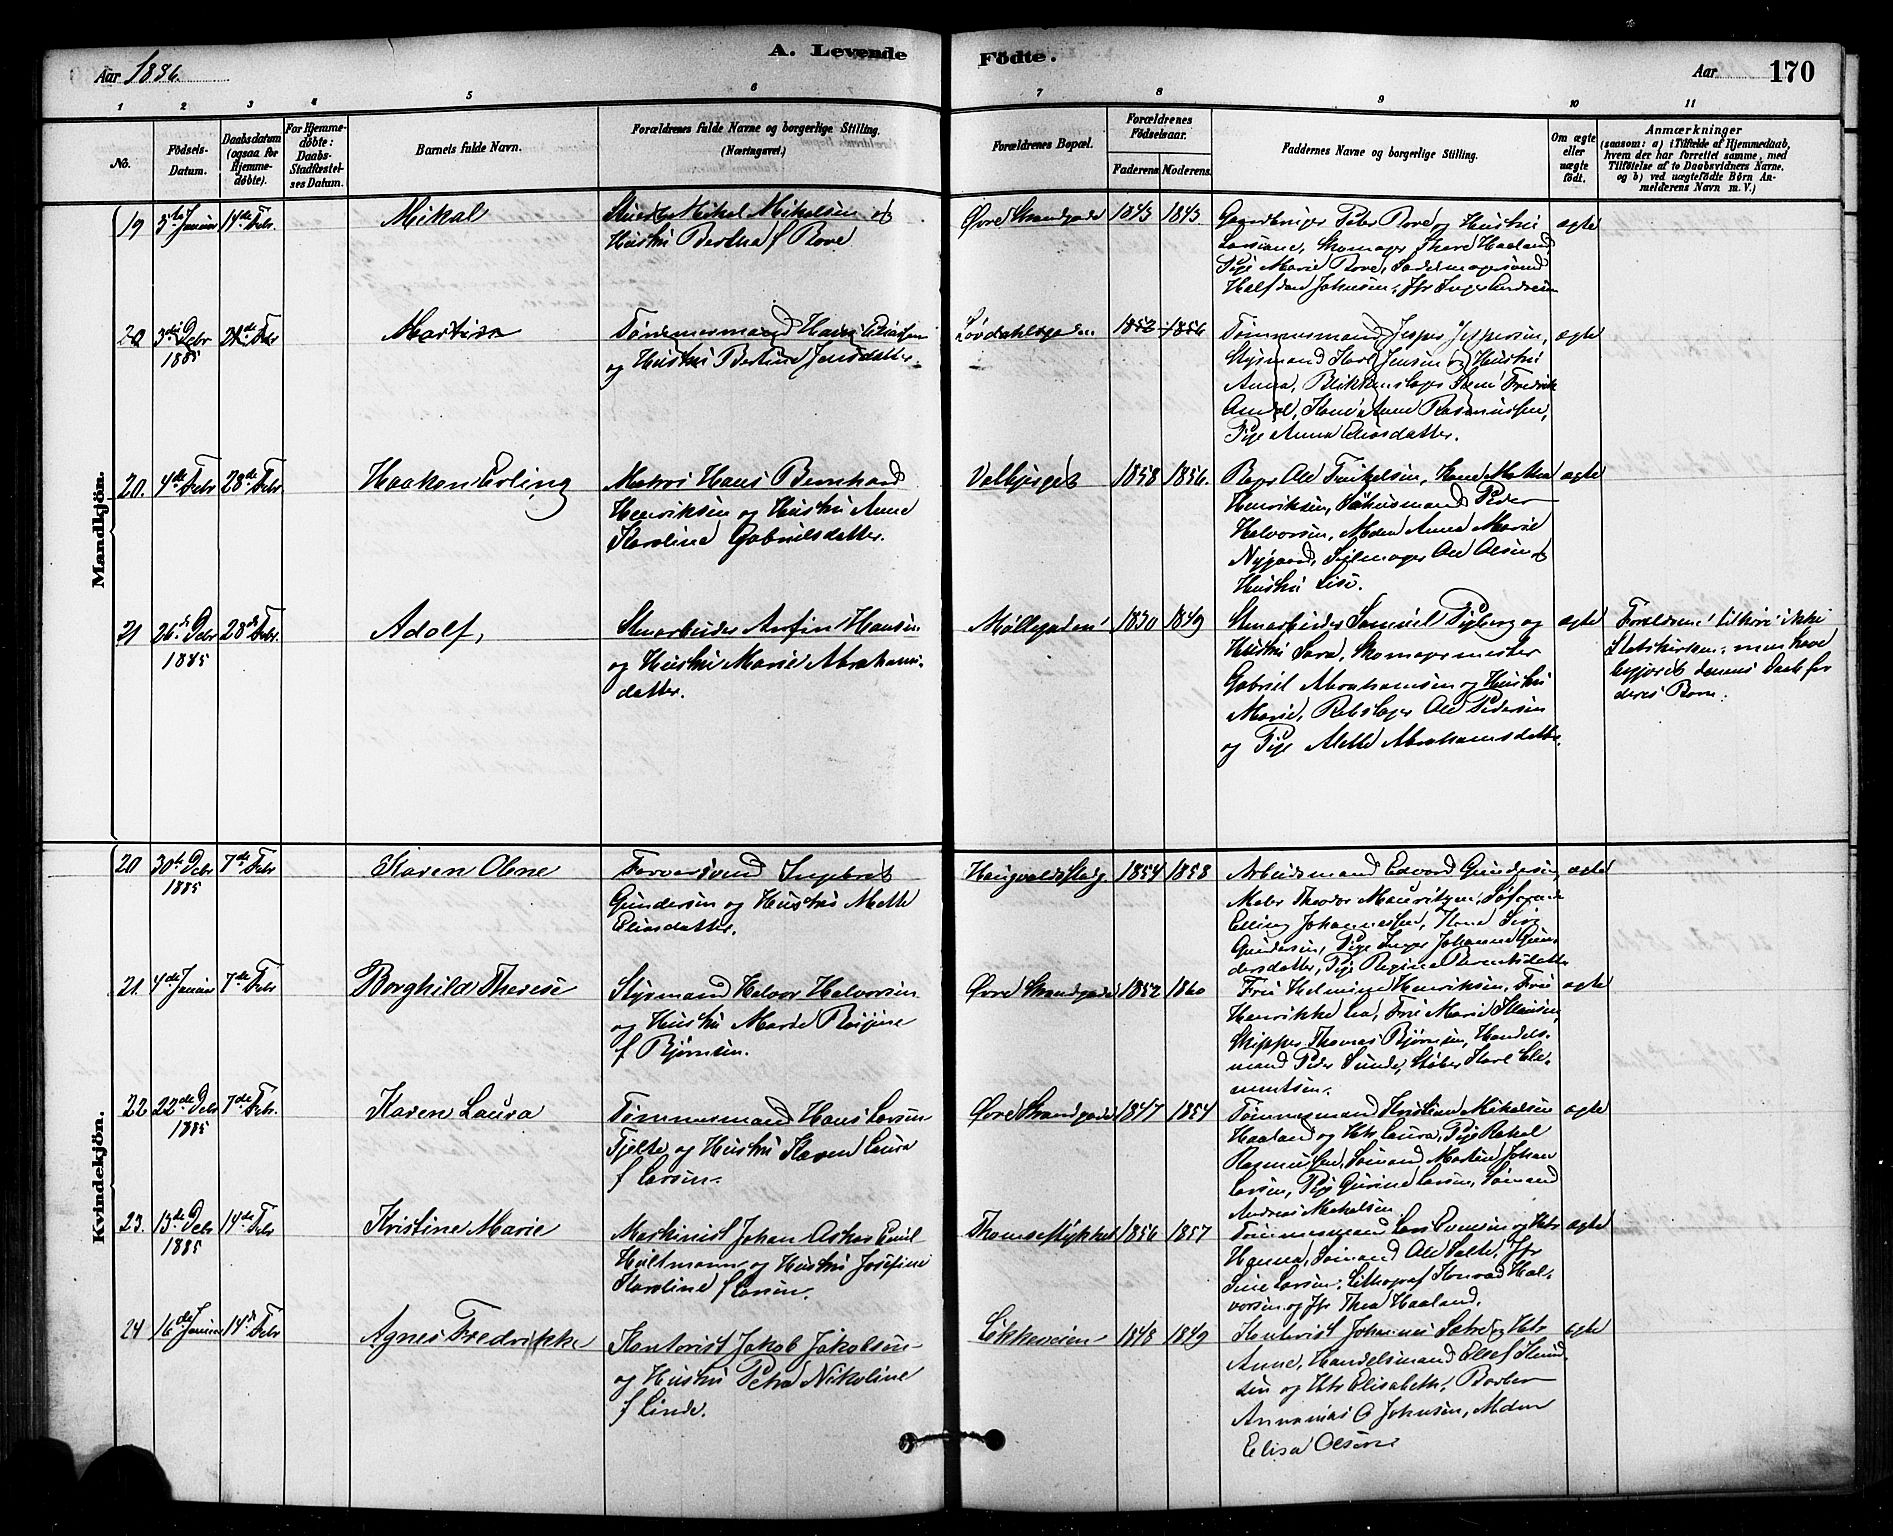 Aar 1886.
A. Levende
Födte.
Aar
170
1 2 3 4 5 6 7 8 9 10 11
No.
Födsels-
Datum.
Daabsdatum
(ogsaa for
Hjemme-
döbte).
For Hjemme-
döbte:
Daabs-
Stadfæstel-
ses Datum.
Barnets fulde Navn.
Forældrenes fulde Navne og borgerlige Stilling.
(Næringsvei.)
Forældrenes Bopæl.
Forældrenes
Födselsaar.
Faderens.
Moderens.
Faddernes Navne og borgerlige Stilling.
Om ægte
eller
uægte
födt.
Anmærkninger
(saasom: a) i Tilfælde af Hjemmedaab,
hvem der har forrettet samme, med
Tilföielse af to Daabsvidners Navne,
og b) ved uægtefödte Börn An-
melderens Navn m. V.)
Mandkjön.
19 3die Januar 14de Febr
Mikal
Mikal Mikalsen og
Hustru Bertha f Rove
Øvre Strandgade 1843 1843
Peder Rove og Hustru
Larsiane, Skomager Thore Haaland
Pige Marie Rove, Sadelmagersvend
Halfdan Johnsen, Jfr Inger Andresen
ægte
20 3die Debr 21de Febr
1885
Martin
Tömmermand Hans Eliassen
og Hustru Bertine Jensdatter
Lövdahlsgaden 1852 1856
Tømmermand Jesper Jespersen,
Styrmand Karl Jensen og Hustru
Anna, Blikkenslager Fredrik
Kone Anne Rasmussen,
Pige Anna Eliasdatter.
ægte
20. 4de Febr 28de Febr
Haakon Erling
Matros Hans Bernhard
Henriksen og Hustru Anne
Karoline Gabrielsdatter.
Valbjerget 1858 1856.
Ole Kone Mathea
Henriksen, Peder
Halvorsen, Madam Anna Marie
Nygaard, Seilmager Ole Olsen og
Hustru Lise.
ægte
21 26de Debr 28de Febr.
1885
Adolf,
Stenarbeider Arfin Hansen
og Hustru Marie Abrahams-
datter.
Møllegaden 1850 1849
Stenarbeider Samuel og
Hustru Sara, Skomagermester
Gabriel Abrahamsen og Hustru
Marie, Rebslager Ole Pedersen
og Pige Alette Abrahamsdatter.
ægte
Forældrene tilhøre ikke
Statskirken, men have
begjæret dennes Daab for
deres Børn.
Kvindekjön.
20 30te Debr 7de Febr
1885
Karen Oline
Farversvend Ingebret
Gundersen og Hustru Mette
Eliasdatter.
Haugvaldstadg. 1854 1858
Arbeidsmand Edvard Gundersen,
Maler Theodor Mauritzen,
Elling Johannessen, Kone
Gundersen, Pige Inger Johanne Gun-
dersdatter, Pige Regine Berntsdatter
ægte
21. 4de Januar 7de Febr
Borghild Therese
Styrmand Halvor Halvorsen
og Hustru Marie Regine
f Bjørnsen.
Øvre Strandgade 1852 1860
Fru Helmine Henriksen, Fru
Henrikke Lea, Fru Marie
Skipper Thomas Bjørnsen, Handels-
mand Peder Sunde, Støber Karl Cle-
mentsen.
ægte
22 22de Debr 7de Febr.
1885
Karen Laura
Tømmermand Hans Larsen
Tjelta og Hustru Karen Laura
f Larsen.
Øvre Strandgade 1847 1854
Tømmermand Kristian Mikalsen
Haaland og Hstr Laura, Pige Rakel
Rasmussen, Sømand Martin Johan
Larsen, Pige Gurine Larsen, Sømand
Andreas Mikalsen
ægte
23. 13de Debr 14de Febr
1885
Kristine Marie
Maskinist Johan Oskar Emil
Hultmann og Hustru Josefine
Karoline f Larsen.
Thomsestykket 1856 1857
Tømmermand Lars Evensen og Hstr
Hanna, Sømand Ole Salte, Jfr
Sine Larsen, Lithograf Konrad Hal-
vorsen og Jfr Thea Haaland.
ægte
24 16de Januar 14de Febr
Agnes Fredrikke
Kontorist Jakob Jakobsen
og Hustru Petra Nikoline
f Linde.
Løkkeveien 1848 1849
Kontorist Johannes og Hstr
Anne, Handelsmand Knud-
sen og Hstr Elisabeth, Barber
Annanias O Johnsen, Madam
Elisa Olsen
ægte